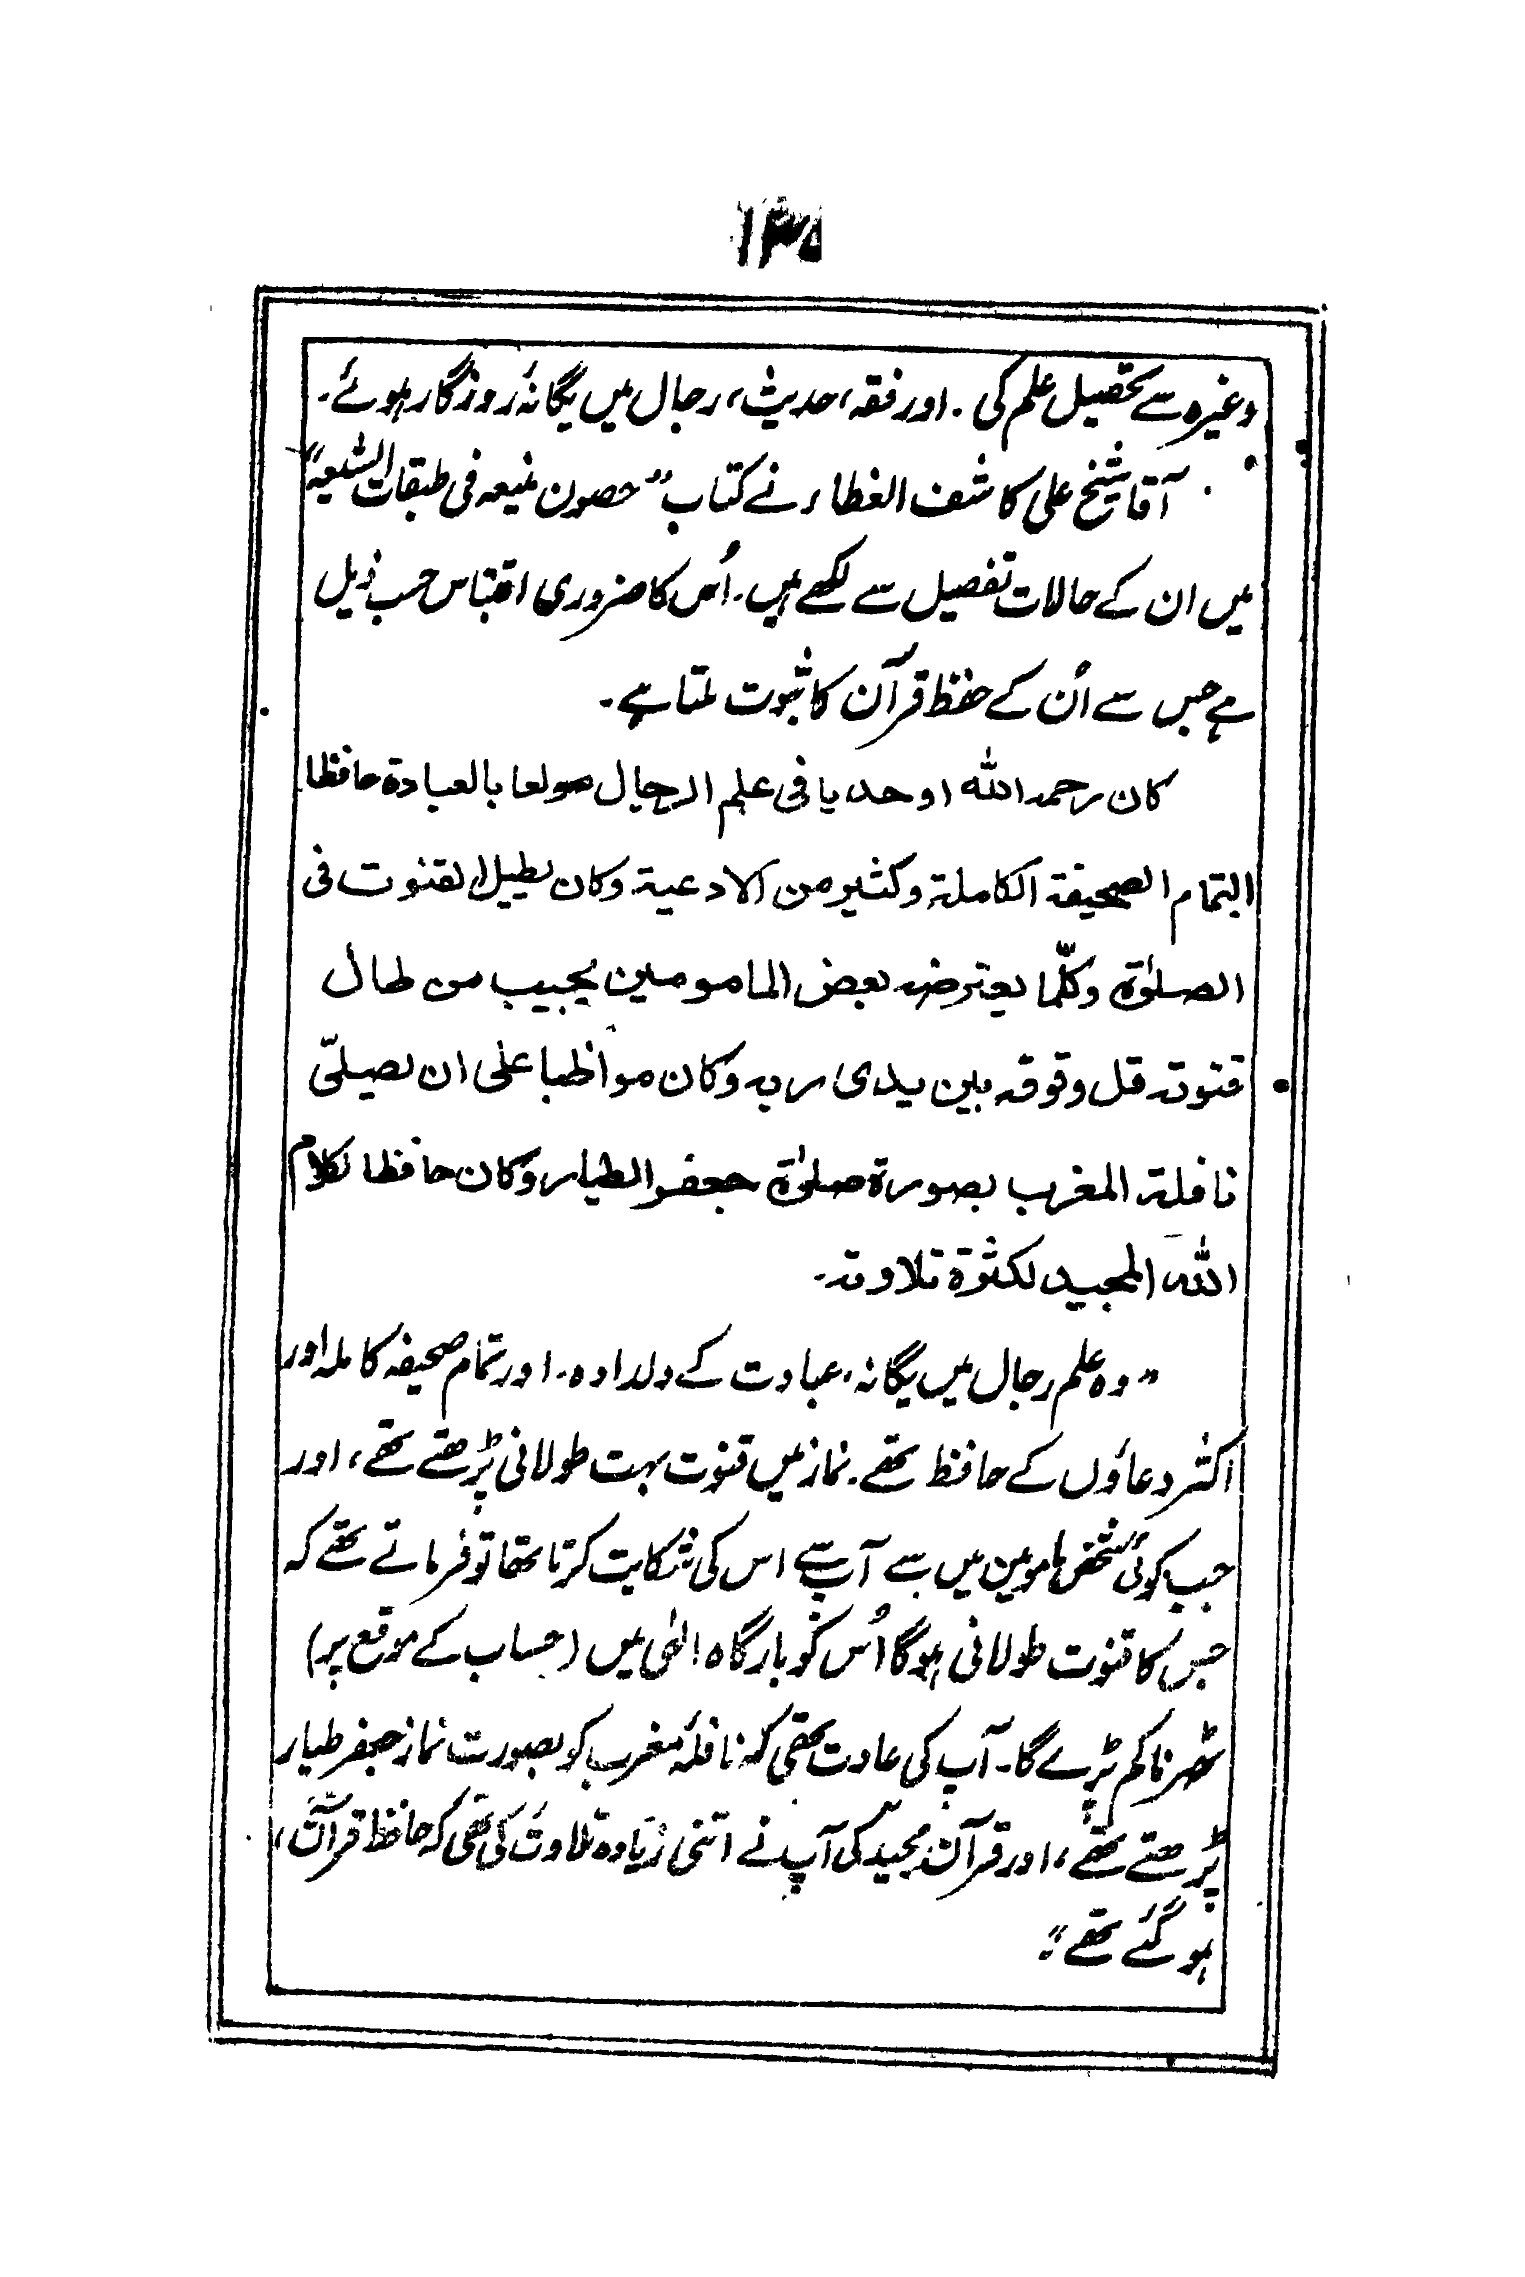 ۱۳۵
وغیرہ سے تحصیل علم کی۔ اور فقہ، حدیث، رجال میں یگانۂ روزگار ہوئے۔
آقا شیخ علی کاشف الغطاء نے کتاب "حصون منیعہ فی طبقات الشیعہ"
میں ان کے حالات تفصیل سے لکھے ہیں۔ اُس کا ضروری اقتباس حسب ذیل
ہے جس سے اُن کے حفظ قرآن کا ثبوت ملتا ہے۔
کان رحمہ اللہ اوحدیا فی علم الرجال مولعا بالعبادة حافظا
التمام الصحیفة الکاملة وکثیر من الادعیة وکان یطیل القنوت فی
الصلوٰة وکلّما یعترضہ بعض المامومین یجیب من طال
قنوتہ قل وقوفہ بین یدی ربہ وکان مواظبا علی ان یصلیّ
نافلة المغرب بصورة صلوٰة جعفر الطیار وکان حافظا لکلام
اللہ المجید لکثرة تلاوتہ۔
"وہ علم رجال میں یگانہ، عبادت کے دلدادہ۔ اور تمام صحیفہ کاملہ اور
اکثر دعاؤں کے حافظ تھے۔ نماز میں قنوت بہت طولانی پڑھتے تھے، اور
جب کوئی شخص مامومین میں سے آپ سے اس کی شکایت کرتا تھا تو فرماتے تھے کہ
جس کا قنوت طولانی ہوگا اُس کو بارگاہ الٰہی میں (حساب کے موقع پر)
ٹھرنا کم پڑے گا۔ آپ کی عادت تھی کہ نافلۂ مغرب کو بصورت نماز جعفر طیار
پڑھتے تھے، اور قرآن مجید کی آپ نے اتنی زیادہ تلاوت کی تھی کہ حافظ قرآن،
ہو گئے تھے"۔